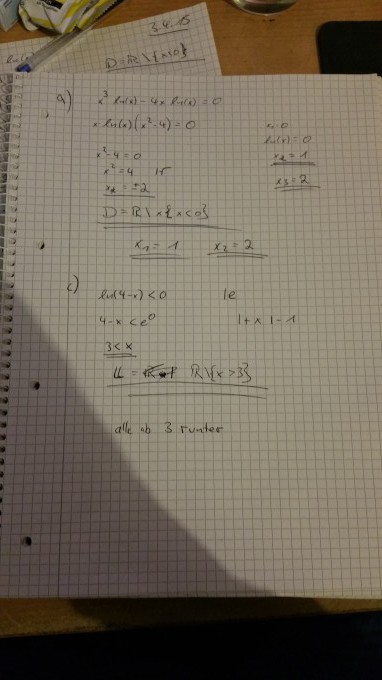 3.4.15
ln(
D=ℝ\{x<0}
a) x³ ln(x) - 4x ln(x) = 0
x ln(x) (x²-4) = 0
x=0
ln(x) = 0
x²-4=0
x₂ = 1
x²=4 |√
x₃ = 2
= ±2
D=ℝ\x{x<0}
x₁ = 1 x₂ = 2
c) ln(4-x) < 0 |e
4-x < e⁰ |+x |-1
3 < x
𝕃 = ℝ\{x>3}
alle ab 3 runter